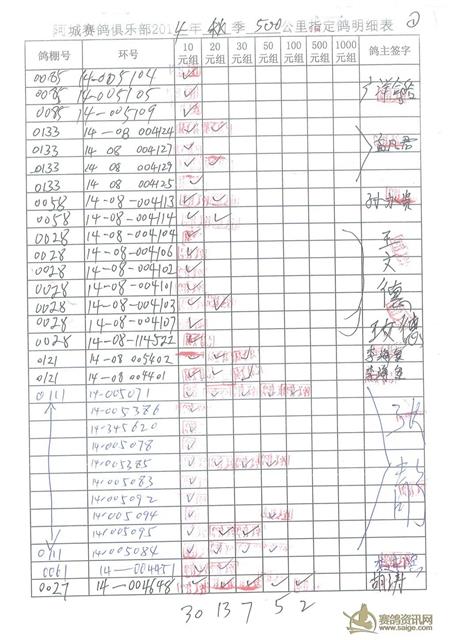 阿城赛鸽俱乐部2014年秋季500公里指定鸽明细表 ①
鸽棚号 环号 10元组 20元组 30元组 50元组 100元组 500元组 1000元组 鸽主签字
0085 14-005104 ✓
0085 14-005105 ✓
0085 14-005109 ✓
0133 14-08 004124 ✓ ✓
0133 14 08 004127 ✓
0133 14 08 004129 ✓ ✓
0133 14 08 004125 ✓
0058 14-08-004113 ✓ ✓
0058 14-08-004114 ✓ ✓
0028 14-08-004104 ✓
0028 14-08-004106 ✓
0028 14-08-004102 ✓
0028 14-08-004101 ✓
0028 14-08-004103 ✓ ✓
0028 14-08-004107 ✓
0028 14-08-114522 ✓
王文德
0121 14-08 005602 ✓ ✓ ✓
0121 14-08 004401 ✓ ✓ ✓
0111 14-005071 ✓ ✓ ✓ ✓ ✓
14-005386 ✓
14-345620 ✓
14-005078 ✓
14-005385 ✓ ✓ ✓ ✓
14-005083 ✓
14-005092 ✓
14-005094 ✓ ✓
14-005095 ✓ ✓ ✓
0111 14-005084 ✓ ✓ ✓ ✓
0061 14-004451 ✓ ✓
0027 14-004648 ✓ ✓ ✓ ✓ ✓
30 13 7 5 2
赛鸽资讯网
www.saige.com